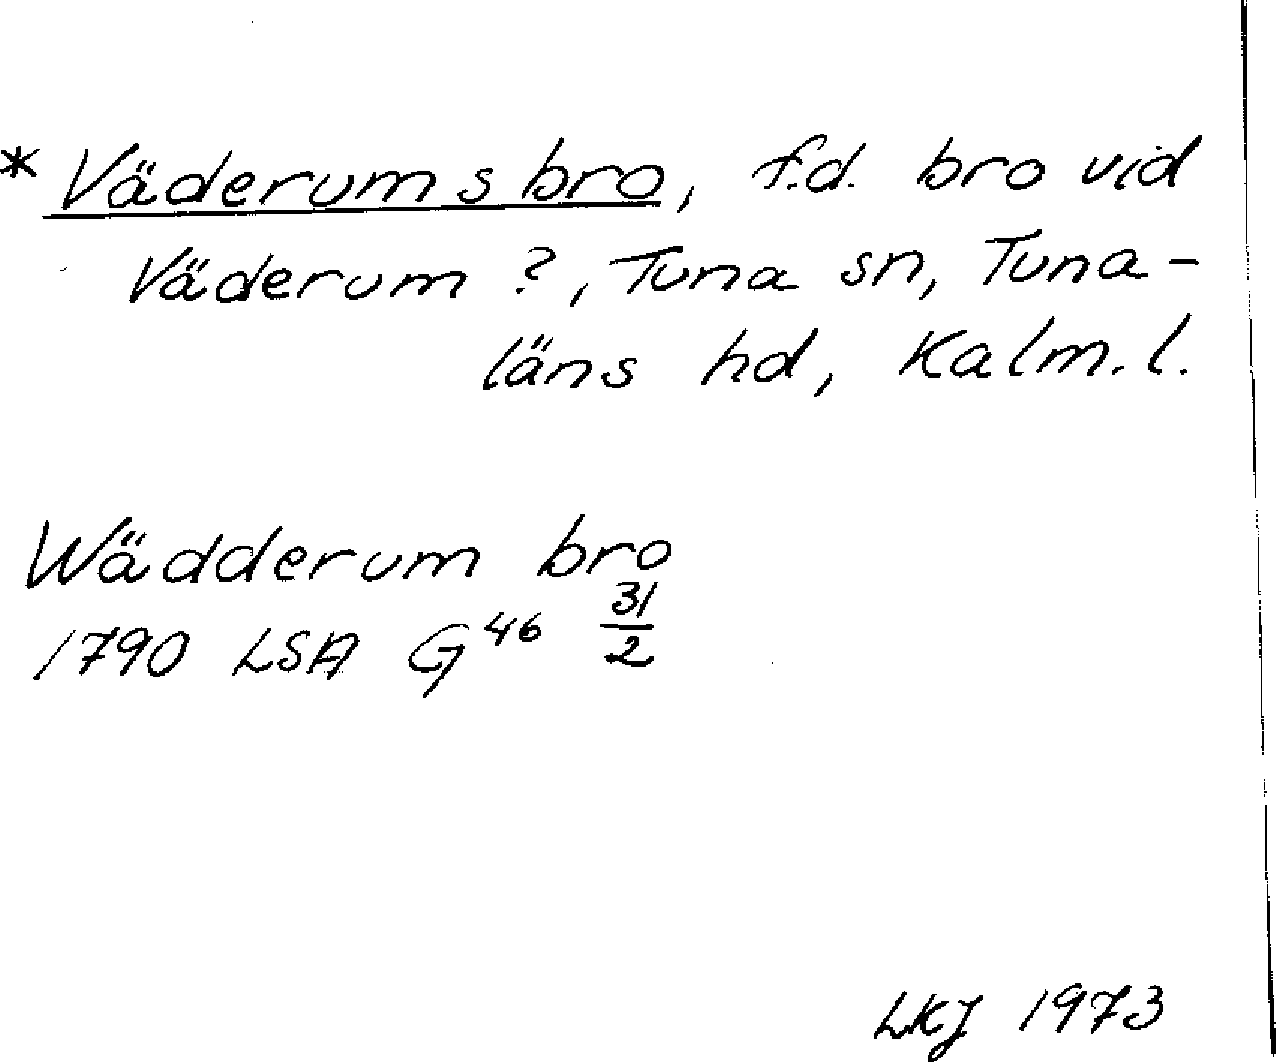 * Väderumsbro, f.d. bro vid
Väderum ?, Tuna sn, Tuna-
läns hd, Kalm. l.
Wädderum bro
1790 LSA G⁴⁶ 31/2
LKJ 1973